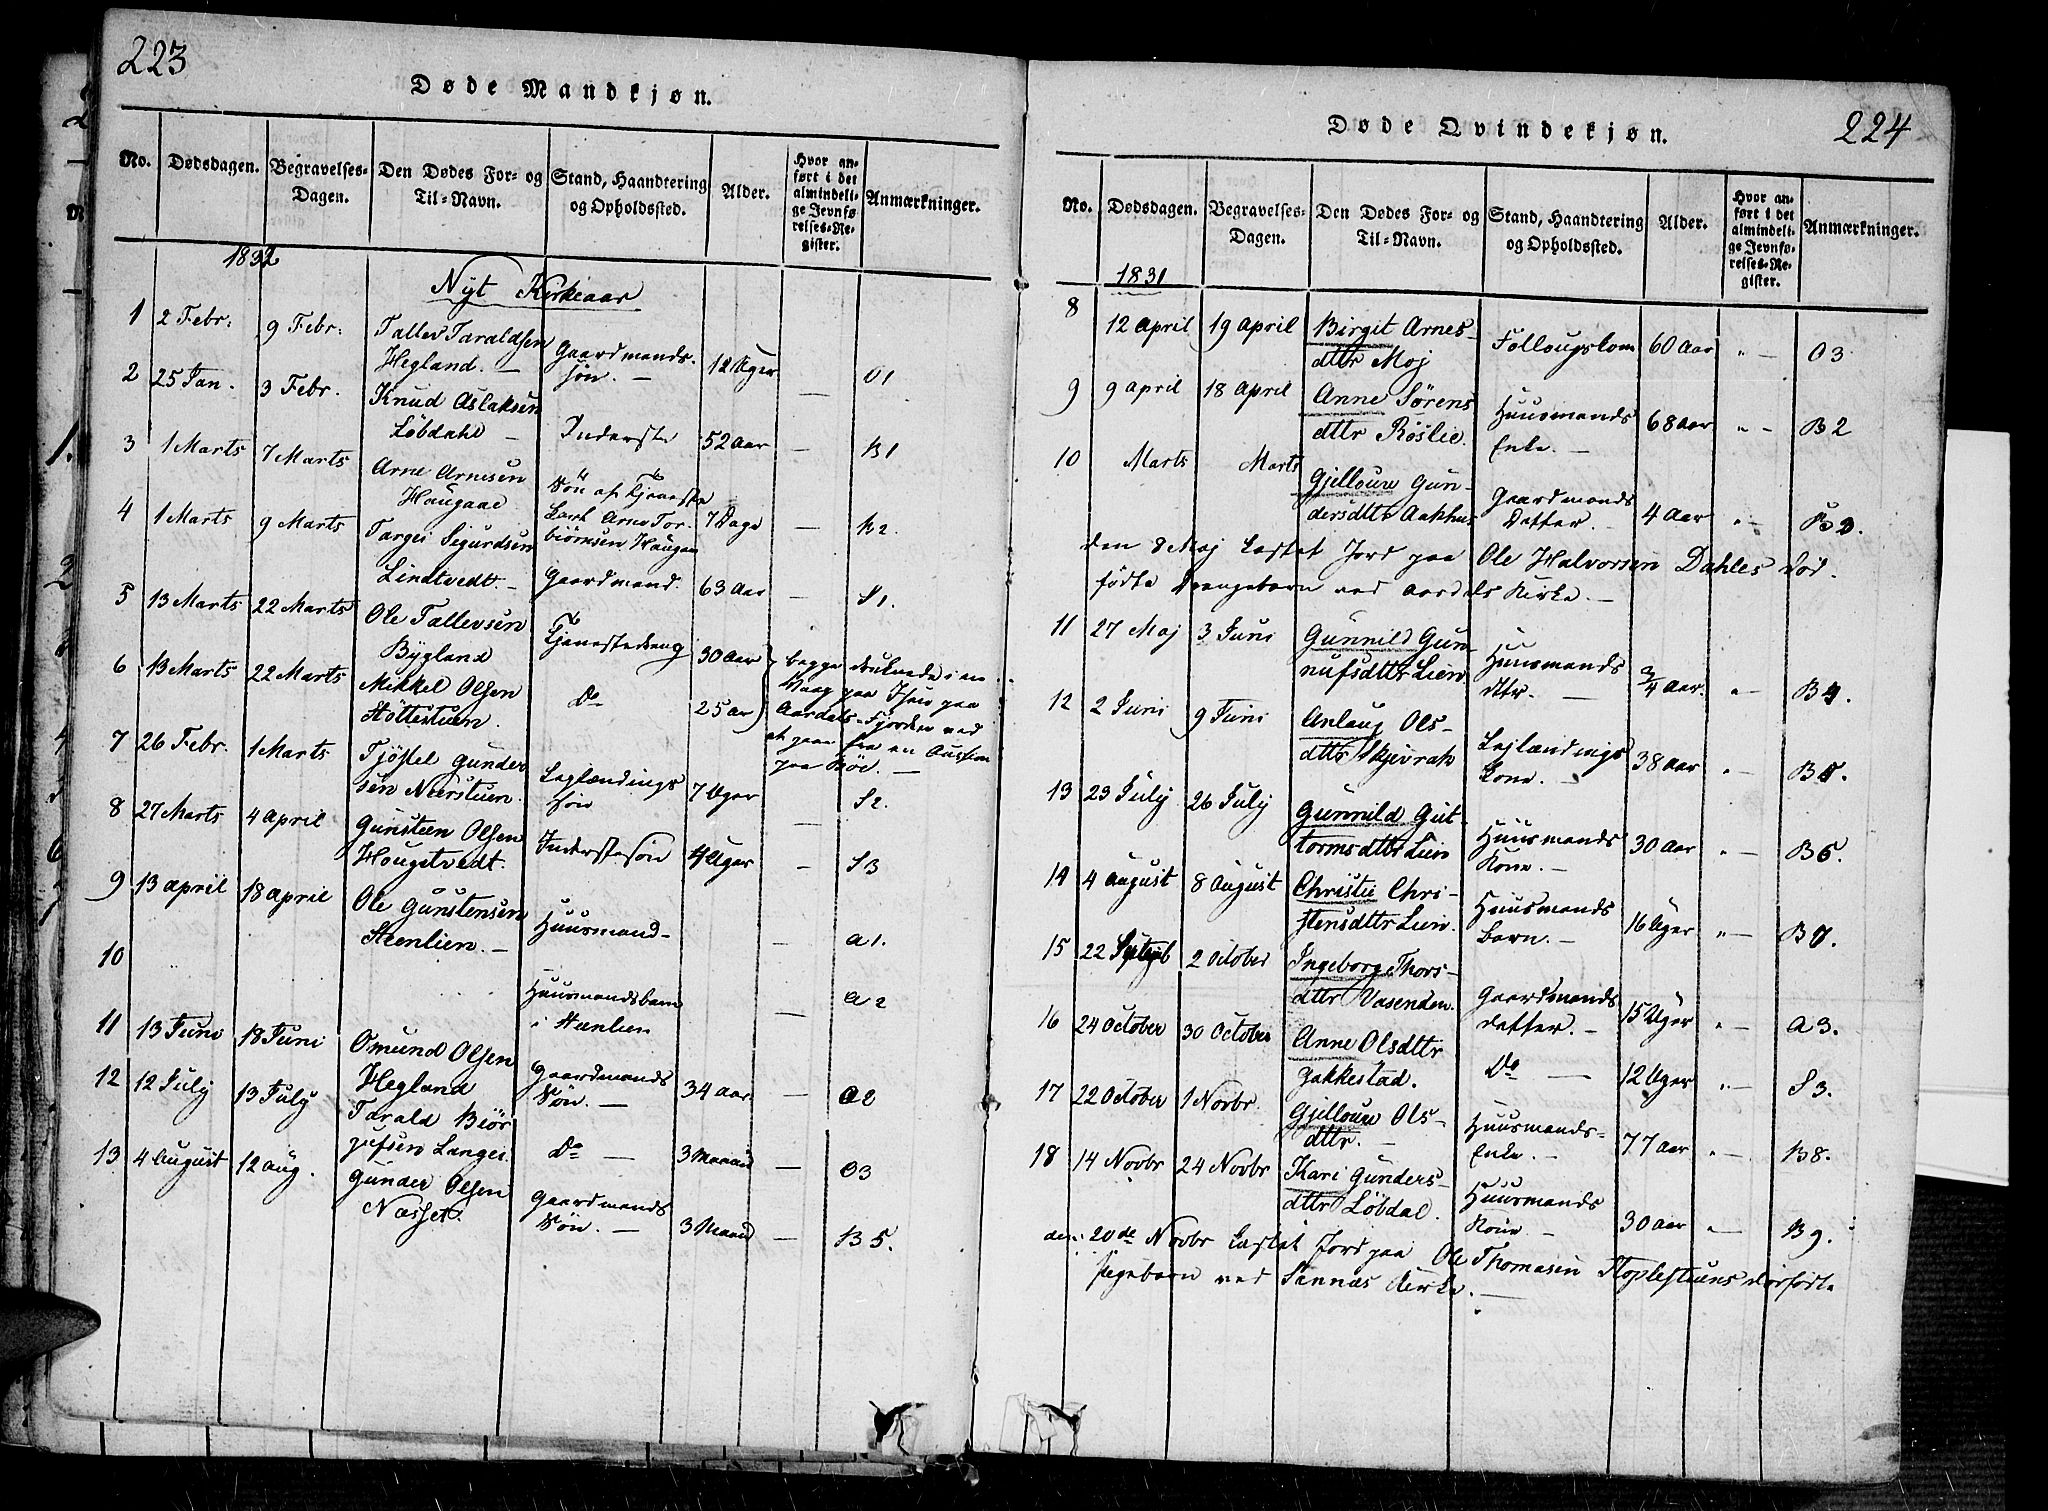 223
Døde Mandkjøn.
No. Dødsdagen. Begravelses-Dagen. Den Dødes For- og Til-Navn. Stand, Haandtering og Opholdssted. Alder. Hvor anført i det almindelige Jevnførelses-Register. Anmærkninger.
1832
Nyt Kirkeaar
1 2 Febr: 9 Febr: Tallev Taraldsen Gaardmands- 12 Uger — O1
Hegland. — søn. —
2 25 Jan. 3 Febr. Knud Aslaksen Inderste 52 Aar — B1
Löbdahl —
3 1 Marts 7 Marts Arne Arnesen Søn af Tjeneste 7 Dage — B2.
Haugaae Karl Arne Tor-
biörnsen Haugaae
4 1 Marts 9 Marts Targei Sigurdsen Gaardmand. 63 Aar — S1.
Lindtvedt. —
5 13 Marts 22 Marts Ole Tallevsen Tjenestedreng 30 Aar begge druknede i en
Bygland Vaag paa Isen paa
6 13 Marts 22 Marts Mikkel Olsen Do 25 Aar Aardals-Fjorden ved
Høttestuen. at gaae fra en Auction
paa Bøe. —
7 26 Febr. 1 Marts Tjöstel Gunder- Leglændings 7 Uger — S2.
sen Neerstuen. søn
8 27 Marts 4 April Gunsteen Olsen Inderstesön 4 Uger — S3
Hougetvedt.
9 13 April 18 April Ole Gunstensen Huusmand — — A1.
Steenlien. —
10 Huusmandsbarn — A2
i Steenlien
11 13 Juni 18 Juni Omund Olsen Gaardmands 34 Aar — O2
Hegland Søn. —
12 12 July 13 July Tarald Biör- Do — 3 Maaned — O3
gufsen Langei.
13 4 August 12 Aug. Gunder Olsen Gaardmands 3 Maaned — B5.
Næsset. Søn. —
224
Døde Qvindekjøn.
No. Dødsdagen. Begravelses-Dagen. Den Dødes For- og Til-Navn. Stand, Haandtering og Opholdssted. Alder. Hvor anført i det almindelige Jevnførelses-Register. Anmærkninger.
1831
8 12 April 19 April Birgit Arnes- Føllougskone 60 Aar " — O3
dttr Moj
9 9 April 18 April Anne Sørens Huusmands 68 Aar " — B2
dttr Röslie. Enke. —
10 Marts Marts Gjelloug Gun- Gaardmands 4 Aar " — B3.
dersdttr Aakhus Datter. —
den 8 Maj Kastet Jord paa Ole Halvorsen Dahles död-
födte Drengebarn ved Aardals Kirke. —
11 27 Maj 3 Juni Gunnild Gun- Huusmands 3/4 Aar. " — B4.
nufsdttr Lien dttr. —
12 2 Juni 9 Juni Anlaug Ols- Lejlændings 38 Aar " — B5.
dttr Skjevrak Kone. —
13 23 July 26 July Gunnild Gut- Huusmands 30 Aar " — B6.
tormsdttr Lien Kone. —
14 4 August 8 August Christie Chri- Huusmands 16 Uger " — B7.
stensdttr Lien. barn. —
15 22 Septb 2 October Ingeborg Thors- Gaardmands 15 Uger " — A3.
dttr Vasenden. datter. —
16 24 October 30 October Anne Olsdttr Do — 12 Uger " — S3.
Zakkestad.
17 22 October 1 Novbr. Gjelloug Ols- Huusmands- 77 Aar " — B8.
dttr. — Enke. —
18 14 Novbr 24 Novbr Kari Gunders- Huusmands 30 Aar " — B9.
dttr Löbdal. Kone. —
den 20de Novbr Kastet Jord paa Ole Thomasen Stoplestuens dödfödte
pigebarn ved Sannæs Kirke. —